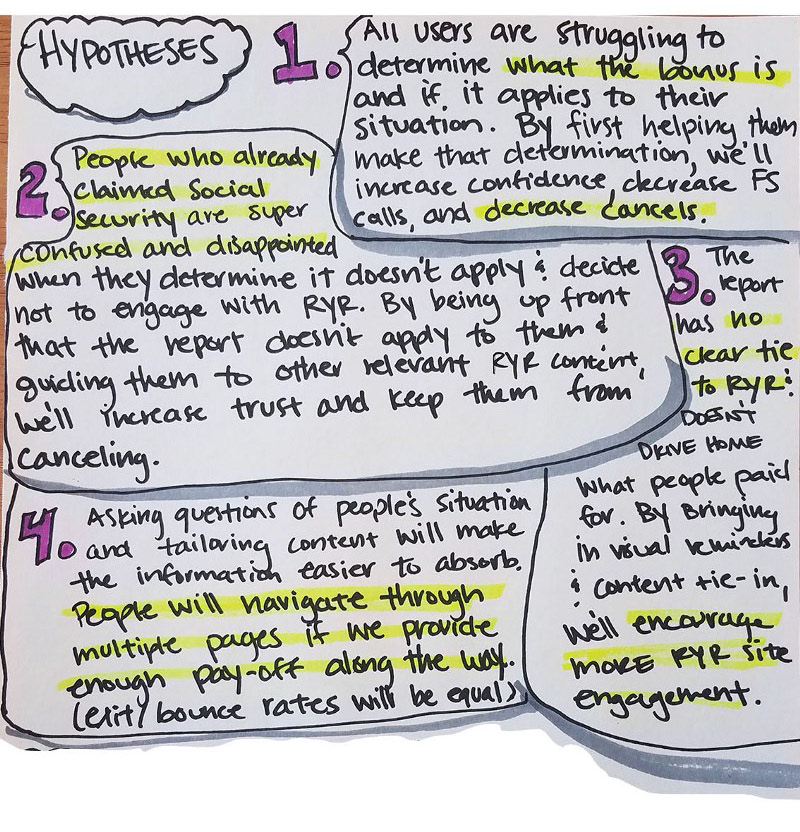 HYPOTHESES
1.
All users are struggling to
determine what the bonus is
and if it applies to their
situation. By first helping them
make that determination, we'll
increase confidence, decrease FS
calls, and decrease cancels.
2.
People who already
claimed Social
Security are super
confused and disappointed
when they determine it doesn't apply & decide
not to engage with RYR. By being up front
that the report doesn't apply to them &
guiding them to other relevant RYR content,
we'll increase trust and keep them from
canceling.
3.
The
report
has no
clear tie
to RYR &
DOESN'T
DRIVE HOME
what people paid
for. By Bringing
in visual reminders
& content tie-in,
we'll encourage
MORE RYR site
engagement.
4.
Asking questions of people's situation
and tailoring content will make
the information easier to absorb.
People will navigate through
multiple pages if we provide
enough pay-off along the way.
(exit/bounce rates will be equal)